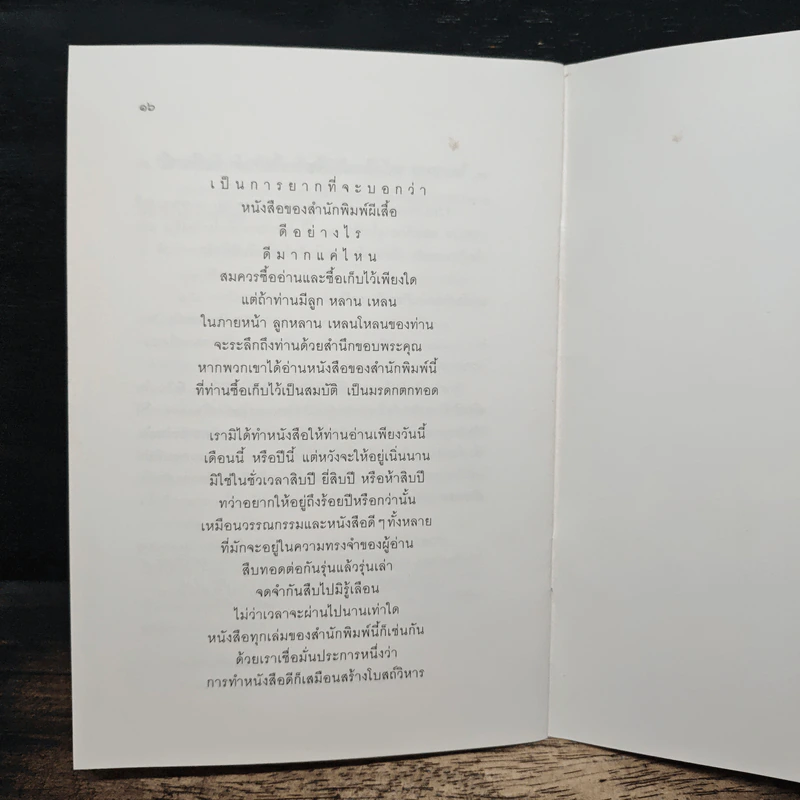 ๑๖
เป็นการยากที่จะบอกว่า
หนังสือของสำนักพิมพ์ผีเสื้อ
ดีอย่างไร
ดีมากแค่ไหน
สมควรซื้ออ่านและซื้อเก็บไว้เพียงใด
แต่ถ้าท่านมีลูก หลาน เหลน
ในภายหน้า ลูกหลาน เหลนโหลนของท่าน
จะระลึกถึงท่านด้วยสำนึกขอบพระคุณ
หากพวกเขาได้อ่านหนังสือของสำนักพิมพ์นี้
ที่ท่านซื้อเก็บไว้เป็นสมบัติ เป็นมรดกตกทอด
เรามิได้ทำหนังสือให้ท่านอ่านเพียงวันนี้
เดือนนี้ หรือปีนี้ แต่หวังจะให้อยู่เนิ่นนาน
มิใช่ในชั่วเวลาสิบปี ยี่สิบปี หรือห้าสิบปี
ทว่าอยากให้อยู่ถึงร้อยปีหรือกว่านั้น
เหมือนวรรณกรรมและหนังสือดีๆ ทั้งหลาย
ที่มักจะอยู่ในความทรงจำของผู้อ่าน
สืบทอดต่อกันรุ่นแล้วรุ่นเล่า
จดจำกันสืบไปมิรู้เลือน
ไม่ว่าเวลาจะผ่านไปนานเท่าใด
หนังสือทุกเล่มของสำนักพิมพ์นี้ก็เช่นกัน
ด้วยเราเชื่อมั่นประการหนึ่งว่า
การทำหนังสือดีก็เสมือนสร้างโบสถ์วิหาร